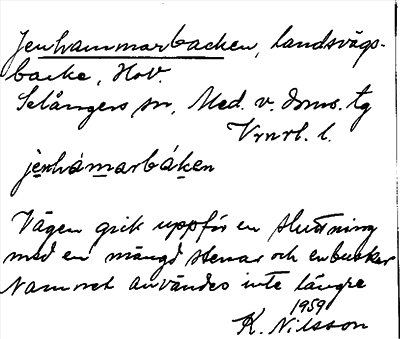 Jenhammarbacken, landsvägs-
backe, Hov.
Selångers sn, Med. v. doms. tg
Vrnrl. l.
jenhámarbáken
Vägen gick uppför en sluttning
med en mängd stenar och enbuskar
Namnet användes inte längre
1959
K. Nilsson